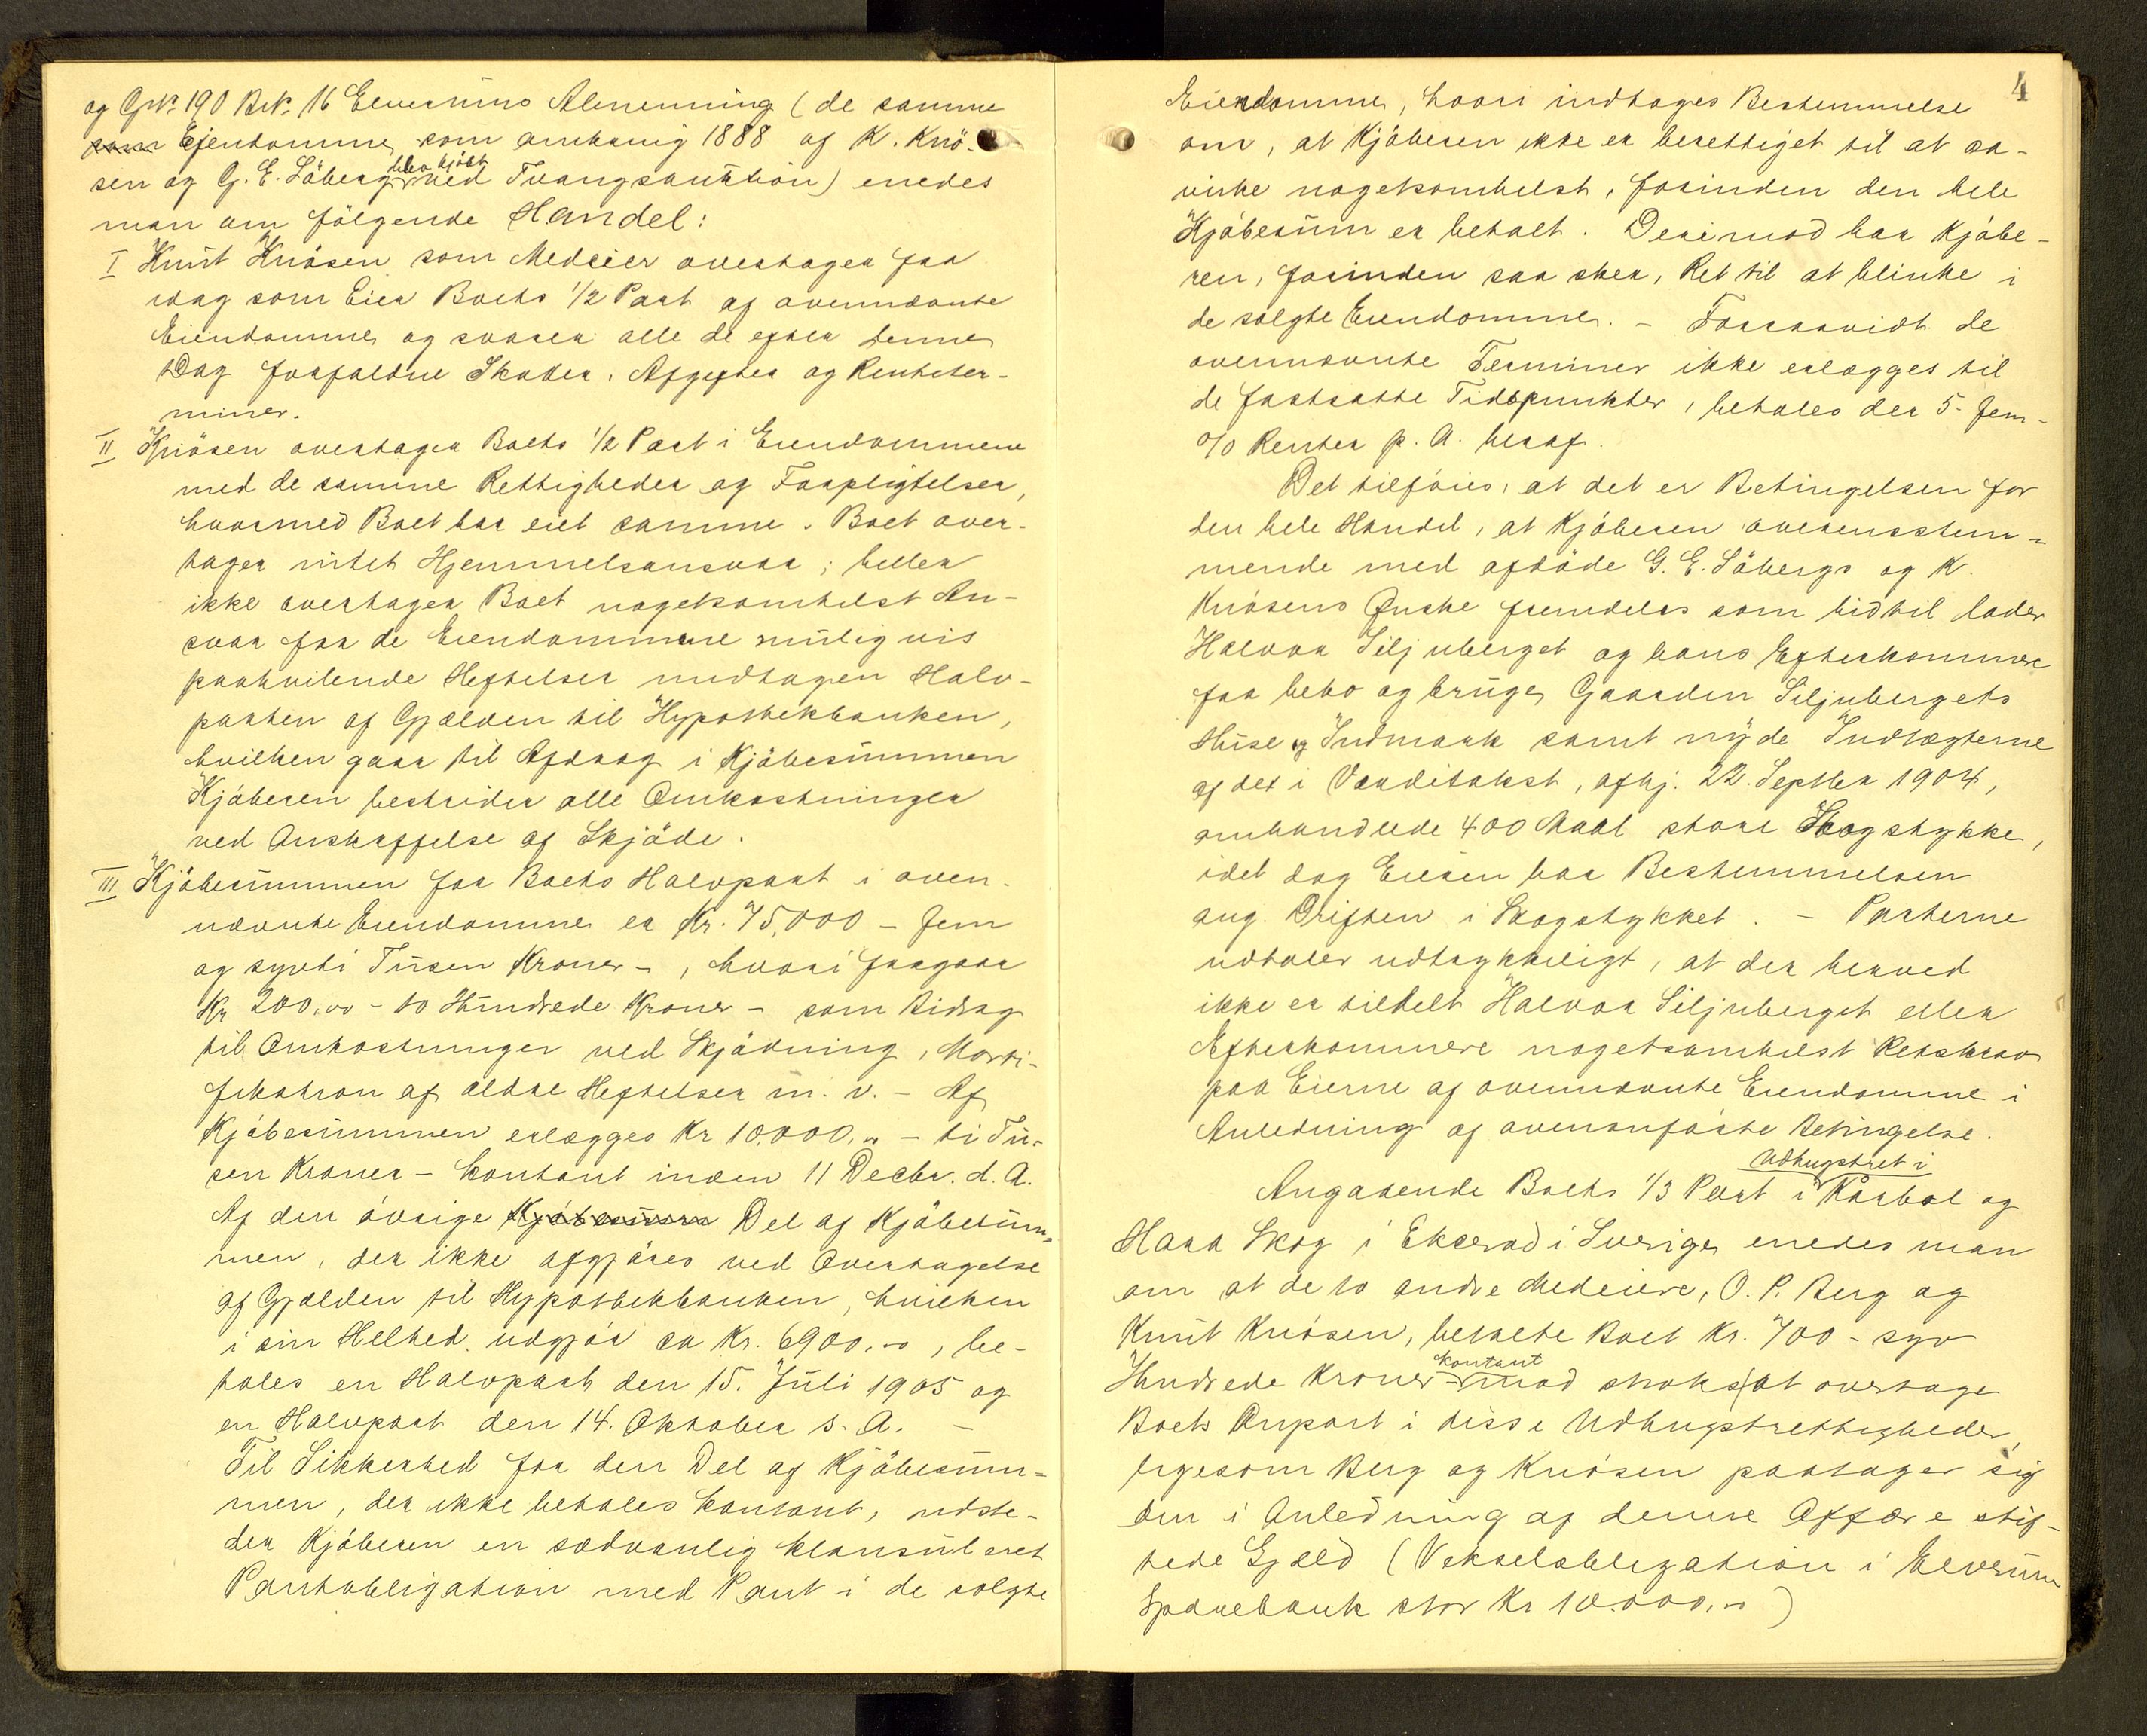 og Gnr. 190 Bnr. 16 Elverums Almenning (de samme
som Ejendomme, som omkring 1888 af K. Knö-
sen og G. E. Söberg blev kjöbt ved Tvangsauktion) enedes
man om fölgende Handel:
I Knut Knösen som Medeier overtager fra
idag som Eier Boets 1/2 Part af ovennævnte
Eiendomme og svarer alle de efter denne
Dag forfaldne Skatter, Afgifter og Renteter-
miner.
II Knösen overtager Boets 1/2 Part i Eiendommene
med de samme Rettigheder og Forpligtelser,
hvormed Boet har eiet samme. Boet over-
tager intet Hjemmelsansvar; heller
ikke overtager Boet nogetsomhelst An-
svar for de Eiendommene muligvis
paahvilende Heftelser undtagen Halv-
parten af Gjælden til Hypothekbanken,
hvilken gaar til Afdrag i Kjöbesummen
Kjöberen bestrider alle Omkostninger
ved Anskaffelse af Skjöde.
III Kjöbesummen for Boets Halvpart i oven-
nævnte Eiendomme er Kr. 75,000 - fem
og sytti Tusen Kroner -, hvori forgaar
Kr 200,00 - to Hundrede Kroner - som Bidrag
til Omkostninger ved Skjödning, Morti-
fikation af ældre Heftelser m. v. - Af
Kjöbesummen erlægges Kr 10.000,00 - ti Tu-
sen Kroner - kontant inden 11 Decbr. d. A.
Af den övrige Kjöbesum Del af Kjöbesum-
men, der ikke afgjöres ved Overtagelse
af Gjælden til Hypothekbanken, hvilken
i sin Helhed udgjör ca Kr. 6900,00, be-
tales en Halvpart den 15. Juli 1905 og
en Halvpart den 14. Oktober s. A. -
Til Sikkerhed for den Del af Kjöbesum-
men, der ikke betales kontant, udste-
der Kjöberen en sædvanlig klausuleret
Pantobligation med Pant i de solgte
4
Eiendomme, hvori indtages Bestemmelse
om, at Kjöberen ikke er berettiget til at
virke nogetsomhelst, forinden den hele
Kjöbesum er betalt. Derimod har Kjöbe-
ren, forinden saa sker, Ret til at blinke i
de solgte Eiendomme. - Forsaavidt de
ovennævnte Terminer ikke erlægges til
de fastsatte Tidspunkter, betales der 5 - fem -
% Renter p. A. heraf.
Det tilföies, at det er Betingelsen for
den hele Handel, at Kjöberen overensstem-
mende med afdöde G. E. Söbergs og K.
Knösens Ønske fremdeles som hidtil lader
Halvor Siljuberget og hans Efterkommere
faa bebo og bruge, Gaarden Siljubergets
Huse og Indmark samt nyde Indtægterne
af det i Værditakst, afhj. 22. Septber 1904,
omhandlede 400 Maal store Skogstykke,
idet dog Eieren har Bestemmelsen
ang. Driften i Skogstykket. - Parterne
udtaler udtrykkeligt, at der herved
ikke er tildelt Halvor Siljuberget eller
Efterkommere nogetsomhelst Retskrav
paa Eierne af ovennævnte Eiendomme i
Anledning af ovenanförte Betingelse.
Angaaende Boets 1/3 Part i Udhugstret i Kårbøl og
Haaa Skog i Eksærad i Sverige enedes man
om at de to andre Medeiere, O. P. Berg og
Knut Knösen, betalte Boet Kr. 700 - syv
Hundrede Kroner - kontant mod straks at overtage
Boets Anpart i disse Udhugstrettigheder,
ligesom Berg og Knösen paatager sig
den i Anledning af denne Affære stif-
tede Gjæld (Vekselobligation i Elverum
Sparebank stor Kr 10.000,00)